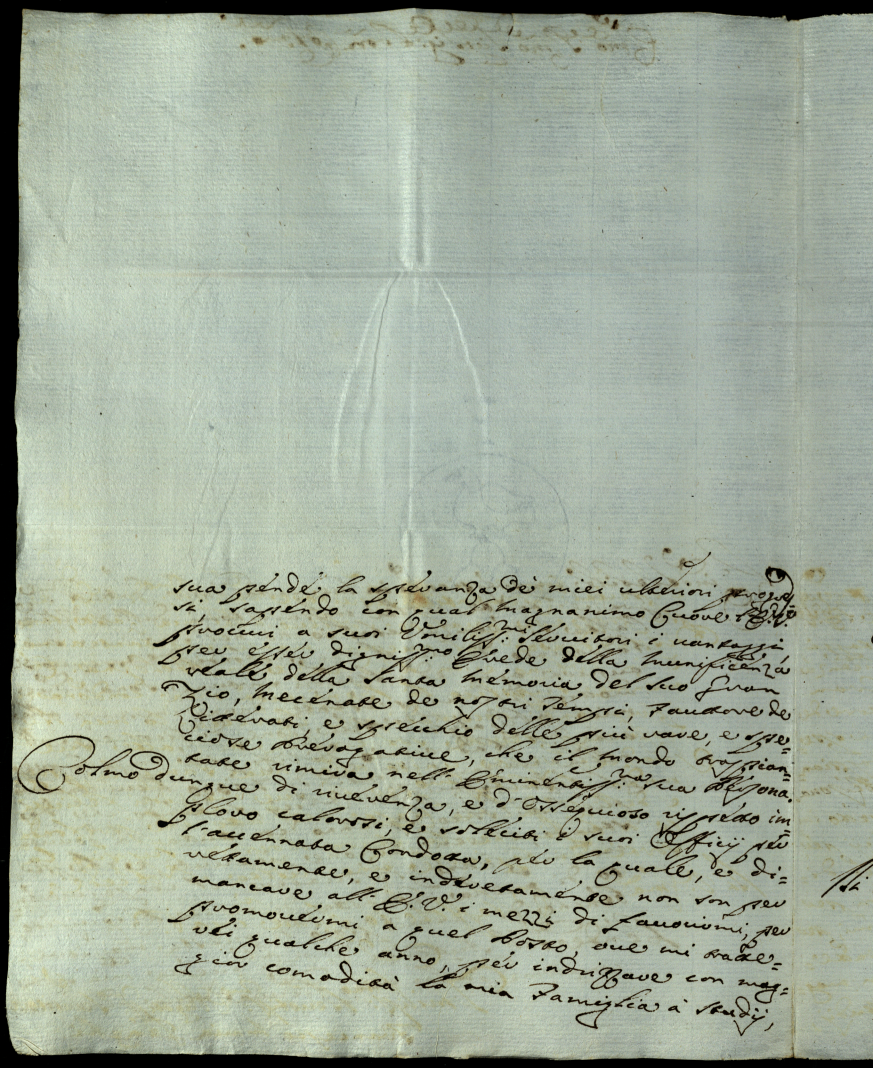 sua pende la speranza de miei ulteriori progres
si, sapendo con qual magnanimo Cuore l'E. V.
procuri a suoi Umiliss:mi Servitori i vantaggi
per esser digniss:mo Erede della munificenza
reale della Santa memoria del suo Gran
Zio, Mecenate de nostri tempi, Fautore de
Literati, e specchio delle più rare, e spe=
ciose Prerogative, che il mondo trappian=
tate rimira nell'Eminentiss:ma sua Persona.
Colmo dunque di riverenza, e d'ossequioso rispetto im=
ploro calorosi, e solleciti i suoi Officij per
l'accennata Condotta, per la quale, e di=
rettamente, e indirettamente non son per
mancare all'E. V. i mezzi di favorirmi, per
promovermi a quel Posto, ove mi tratte=
rei qualche anno, per indrizzare con mag=
gior comodità la mia Famiglia à studij,